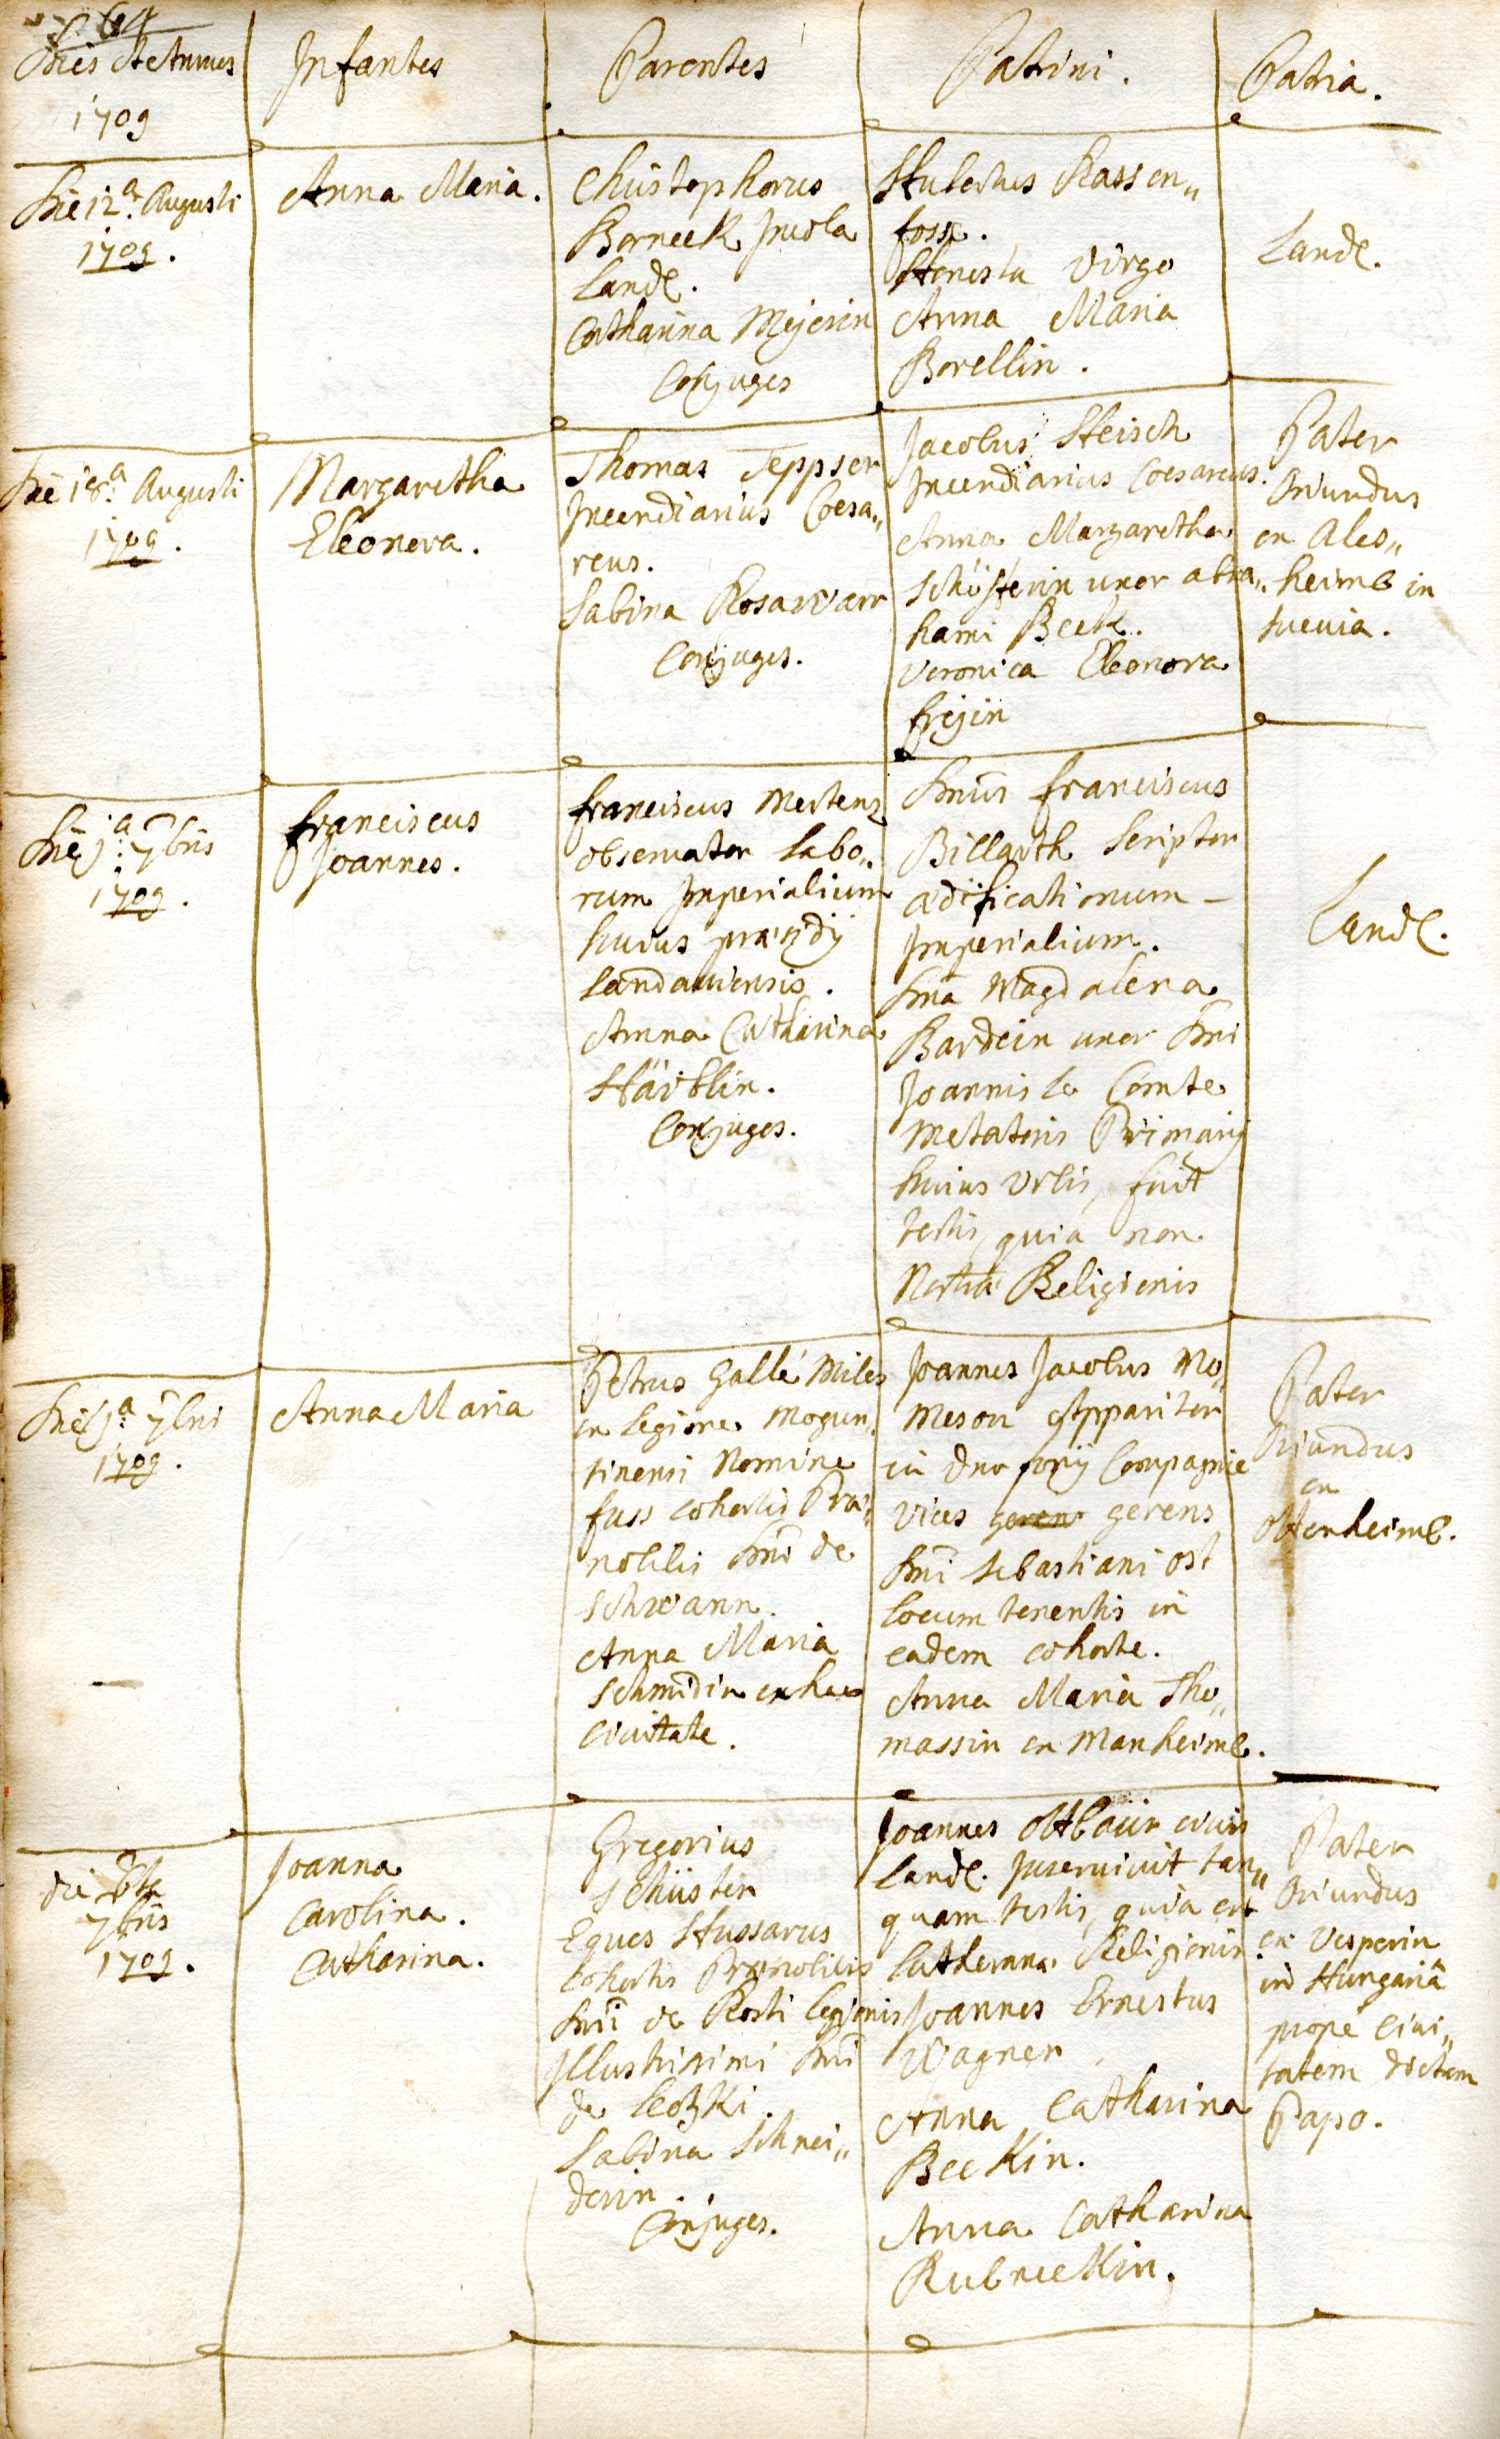 64
Dies et Annus
1709
Infantes
Parentes
Patrini.
Patria.
Die 12a. Augusti
1709.
Anna Maria.
Christophorus
Borneck Incola
Land:
Catharina Mejerin
Conjuges
Hubertus Kassen„
foss.
Honesta Virgo
Anna Maria
Borellin.
Land:
Die 18a. Augusti
1709.
Margaretha
Eleonora.
Thomas Teppser
Incendiarius Coesa„
reus.
Sabina Rosawarr
Conjuges.
Jacobus Heisch
Incendiarius Coesareus.
Anna Margaretha
Schösterin uxor abra„
hami Beck.
Veronica Eleonora
frejin
Pater
Oriundus
ex Ales„
heimb in
suevia.
Die 1a. 7bris
1709.
franciscus
Joannes.
franciscus Mertens
observator labo„
rum Imperialium
huius præsidij
landauiensis.
Anna Catharina
Härtlin.
Conjuges.
Dnus franciscus
Billarth Scriptor
ædificationum
Imperialium.
Dna Magdalena
Bardein uxor Dni
Joannis le Comte
Metatoris Primarij
huius Urbis, fuit
testis, quia non
Nostræ Religionis
Land:
Die 1a 7bris
1709.
Anna Maria
Petrus Gallé Miles
ex legione Mogun„
tinensi Nomine
fuss cohortis Præ„
nobilis Dni de
schwann.
Anna Maria
schmidin ex hac
civitate.
Joannes Jacobus No„
meson Apparitor
in Compagnie
vices geren gerens
Dni Sebastiani ost
locum tenentis in
eadem cohorte.
Anna Maria Tho„
massin ex Manheimb.
Pater
Oriundus
ex
ottenheimb.
die
7bris
1709.
Joanna
Carolina.
Catharina.
Gregorius
Schüster
Eques Hussarus
Cohortis Prænobilis
Dni de Rosti legionis
Illustrissimi Dni
de leotzki.
Sabina Schnei„
derin.
Conjuges.
Joannes ottbaür civis
Land: Inservivit tan„
quam testis, quia est
Lutheranæ Religionis.
Joannes Ernestus
Wagner
Anna Catharina
Beckin.
Anna Catharina
Rubneckin.
Pater
Oriundus
ex Vesperin
in Hungariâ
prope Civi„
tatem dictam
Papo.